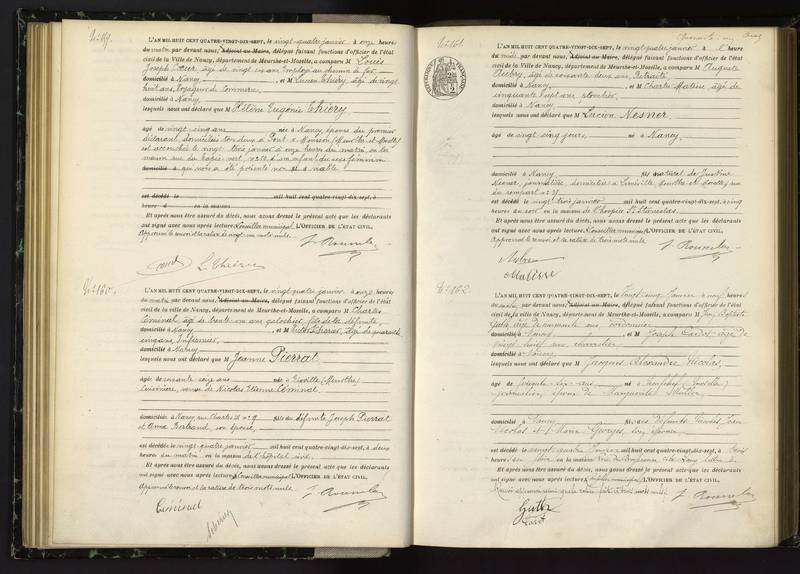 N° 159.
L'AN MIL HUIT CENT QUATRE-VINGT-DIX-SEPT, le vingt-quatre janvier à onze heures
du matin, par devant nous, Adjoint au Maire, délégué faisant fonctions d'officier de l'état
civil de la Ville de Nancy, département de Meurthe-et-Moselle, a comparu M Louis
Joseph Cœur, âgé de vingt six ans, Employé au chemin de fer,
domicilié à Nancy, et M Lucien Thiéry, âgé de vingt
huit ans, Voyageur de Commerce,
domicilié à Nancy
lesquels nous ont déclaré que M Hélène Eugénie Thiéry,
âgé de vingt cinq ans née à Nancy, épouse du premier
déclarant, domiciliés tous deux à Pont-à-Mousson (Meurthe et Moselle)
est accouchée le vingt trois janvier à onze heures du matin, en la
maison rue du d'un enfant du sexe féminin
domicilié à qui nous a été présenté non viable
est décédé le mil huit cent quatre-vingt-dix-sept, à
heure d en la maison
Et après nous être assuré du décès, nous avons dressé le présent acte que les déclarants
ont signé avec nous après lecture, Conseiller municipal L'OFFICIER DE L'ÉTAT CIVIL,
Approuvé le renvoi et la rature de vingt un mots nuls.
Cœur L. Thiéry
N° 160.
L'AN MIL HUIT CENT QUATRE-VINGT-DIX-SEPT, le vingt-quatre janvier à onze heures
du matin, par devant nous, Adjoint au Maire, délégué faisant fonctions d'officier de l'état
civil de la ville de Nancy, département de Meurthe-et-Moselle, a comparu M Charles
Ciminal, âgé de trente un ans, galochier, fils de la défunte,
domicilié à Nancy, et M âgé de quarante
cinq ans, Infirmier,
domicilié à Nancy
lesquels nous ont déclaré que M Jeanne Pierrat
âgée de soixante seize ans née à (Meurthe)
Cuisinière, veuve de Nicolas Etienne Ciminal
domicilié à Nancy, rue Charles III n° 9 fille des défunts Joseph Pierrat
et Anne Bertrand, son épouse,
est décédée le vingt-quatre janvier mil huit cent quatre-vingt-dix-sept, à deux
heures du matin en la maison de l'hôpital civil.
Et après nous être assuré du décès, nous avons dressé le présent acte que les déclarants
ont signé avec nous après lecture, Conseiller municipal L'OFFICIER DE L'ÉTAT CIVIL,
Approuvé le renvoi et la rature de trois mots nuls.
Ciminal
N° 161.
L'AN MIL HUIT CENT QUATRE-VINGT-DIX-SEPT, le vingt-quatre janvier à heure
du midi, par devant nous, Adjoint au Maire, délégué faisant fonctions d'officier de l'état
civil de la Ville de Nancy, département de Meurthe-et-Moselle, a comparu M Auguste
Aubry, âgé de soixante deux ans, Retraité
domicilié à Nancy, et M Charles âgé de
cinquante sept ans, plombier,
domicilié à Nancy
lesquels nous ont déclaré que M Lucien Nesner,
âgé de vingt cinq jours, né à Nancy,
domicilié à Nancy fils naturel de Justine
Nesner, journalière, domiciliée à Lunéville (Meurthe et Moselle) rue
du rempart n° 27
est décédé le vingt trois janvier mil huit cent quatre-vingt-dix-sept, à cinq
heures du soir en la maison de l'hospice St Stanislas.
Et après nous être assuré du décès, nous avons dressé le présent acte que les déclarants
ont signé avec nous après lecture, Conseiller municipal L'OFFICIER DE L'ÉTAT CIVIL,
Approuvé le renvoi et la rature de trois mots nuls.
Aubry
N° 162
L'AN MIL HUIT CENT QUATRE-VINGT-DIX-SEPT, le vingt cinq janvier à neuf heures
du matin, par devant nous, Adjoint au Maire, délégué faisant fonctions d'officier de l'état
civil de la ville de Nancy, département de Meurthe-et-Moselle, a comparu M Jean Baptiste
âgé de cinquante ans, cordonnier
domicilié à Nancy, et M Joseph Cardot, âgé de
vingt huit ans,
domicilié à Nancy
lesquels nous ont déclaré que M Jacques Alexandre Nicolas,
âgé de soixante dix ans né à Neufchef (Moselle)
époux de Marguerite Muller,
domicilié à Nancy fils des défunts Nicolas Jean
Nicolas et Marie Georges, son épouse
est décédé le vingt quatre janvier mil huit cent quatre-vingt-dix-sept, à trois
heures du soir en la maison
Et après nous être assuré du décès, nous avons dressé le présent acte que les déclarants
ont signé avec nous après lecture, Conseiller municipal L'OFFICIER DE L'ÉTAT CIVIL,